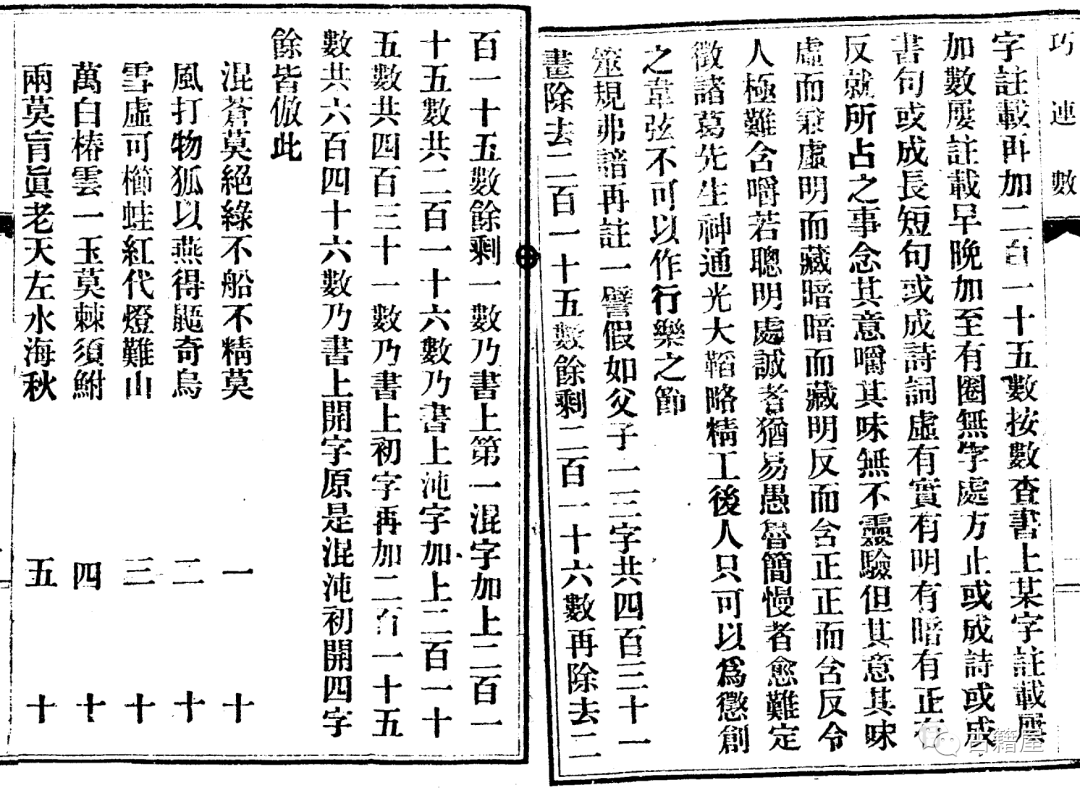 巧連數
字註載再加二百一十五數按數查書上某字註載屢
加數屢註載早晚加至有圈無字處方止或成詩或成
書句或成長短句或成詩詞虛有實有明有暗有正有
反就所占之事念其意嚼其味無不靈驗但其意其味
虛而兼虛明而藏暗暗而藏明反而含正正而含反令
人極難含嚼若聰明處誠者猶易愚魯簡慢者愈難定
徵諸葛先生神通光大韜略精工後人只可以為懲創
之韋弦不可以作行樂之節
筮規弗諳再註一譬假如父子一三字共四百三十一
畫除去二百一十五數餘剩二百一十六數再除去二
百一十五數餘剩一數乃書上第一混字加上二百一
十五數共二百一十六數乃書上沌字加上二百一十
五數共四百三十一數乃書上初字再加二百一十五
數共六百四十六數乃書上開字原是混沌初開四字
餘皆倣此
混蒼莫絕綠不船不精莫 一 十
風打物狐以燕得鼯奇烏 二 十
雪虛可櫛蛙紅代燈難山 三 十
萬白椿雲一玉莫棘須鮒 四 十
兩莫肓眞老天左水海秋 五 十
古籍屋